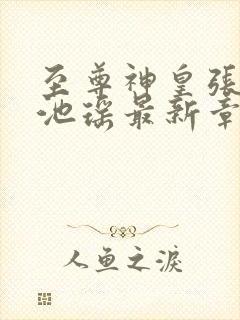 至尊神皇張
池瑤最新章
人鱼之淚